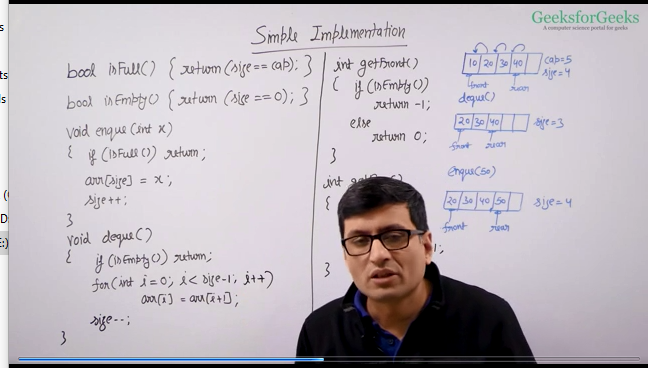 GeeksforGeeks
A computer science portal for geeks
Simple Implementation
bool isFull() { return (size == cap); }
bool isEmpty() { return (size == 0); }
void enque (int x)
{ if (isFull()) return;
arr[size] = x;
size++;
}
void deque()
{ if (isEmpty()) return;
for(int i=0; i< size-1; i++)
arr[i] = arr[i+1];
size--;
}
int getFront()
{ if (isEmpty())
return -1;
else
return 0;
}
int
{
1;
}
10 20 30 40
cap=5
size=4
front rear
deque()
20 30 40
size=3
front rear
enque(50)
20 30 40 50
size=4
front rear